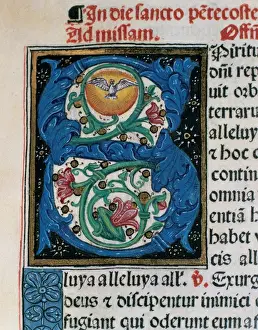 ¶ In die sancto pẽtecoste
Ad missam. Offm̃
SPiritu
dñi rep
uit orb
terraru
alleluy
⁊ hoc c
contin
omnia
entiã h
habet v
cis all
luya alleluya all'. ℣. Exurg
deus ⁊ discipentur inimici e
fugiant qui oderunt eum a f